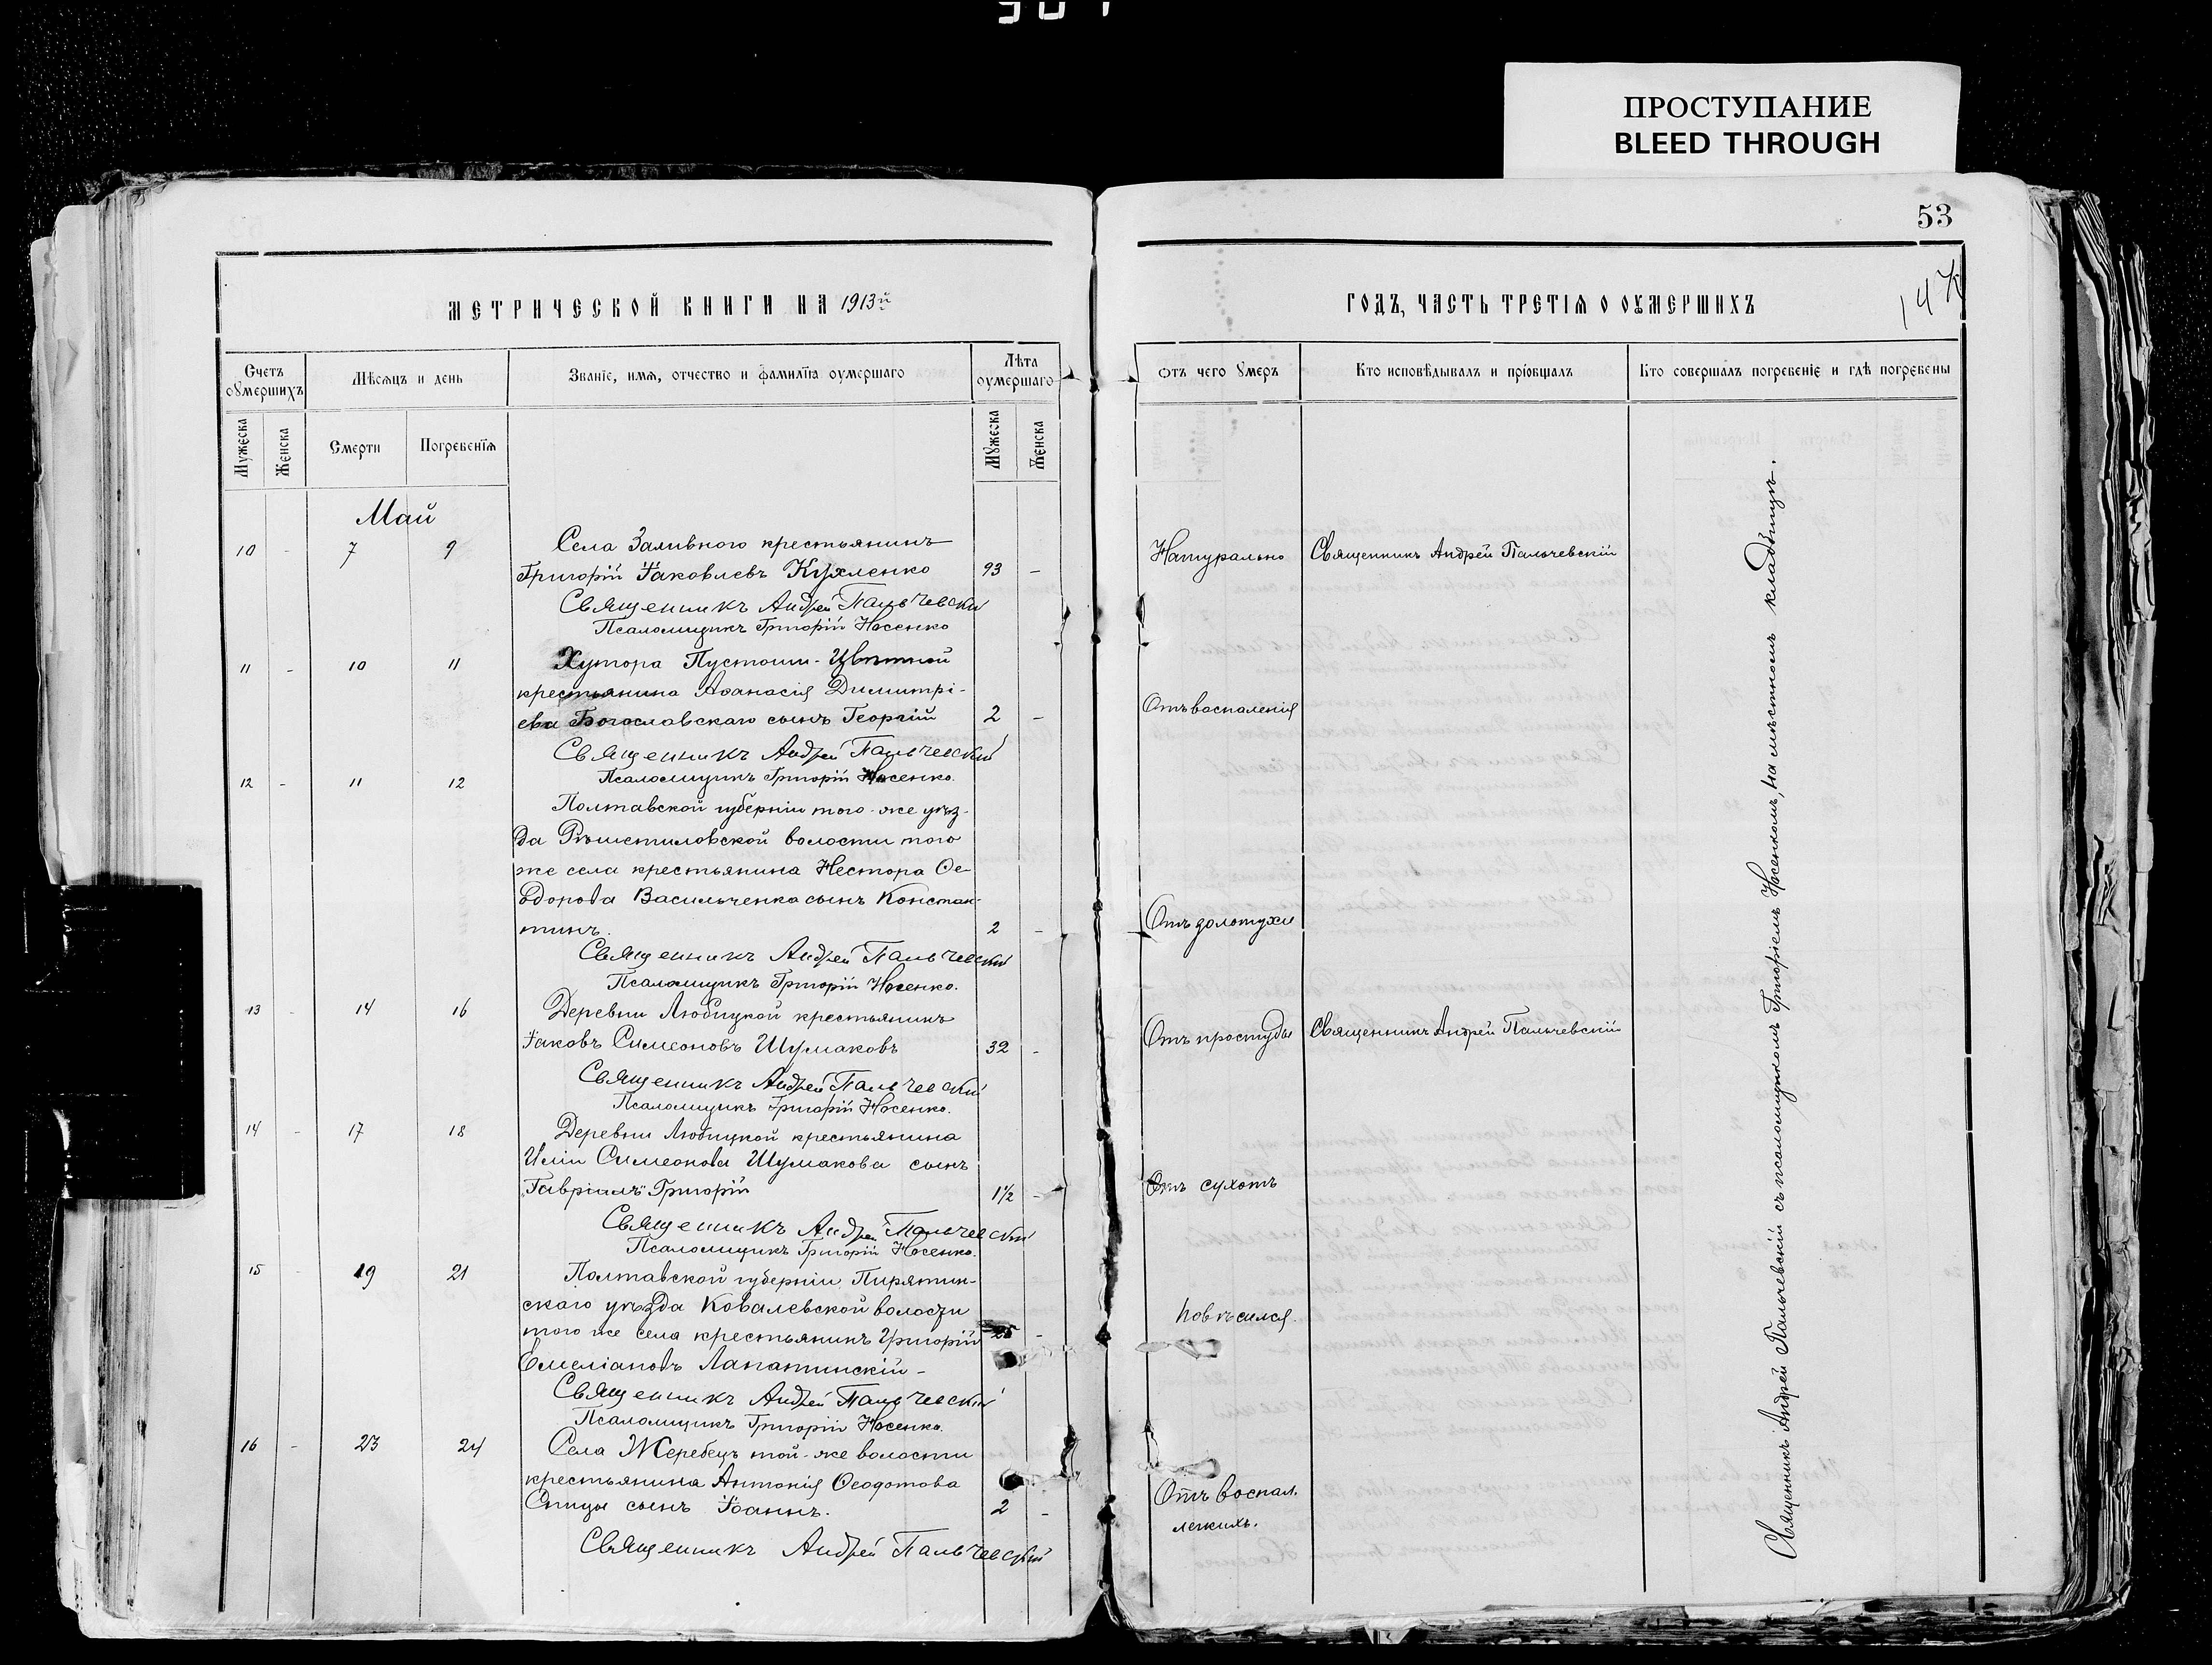 ПРОСТУПАНИЕ
BLEED THROUGH
53
147
МЕТРИЧЕСКОЙ КНИГИ НА 1913й
Счетъ оумершихъ
Мѣсяцъ и день
Званіе, имя, отчество и фамилія оумершаго
Лѣта оумершаго
Мужеска
Женска
Смерти
Погребенія
Мужеска
Женска
Май
10 - 7 9
Села Заливного крестьянинъ
Григорій Іаковлевъ Кухленко 93 -
Священникъ Андрей Пальчевскій
Псаломщикъ Григорій Носенко
11 - 10 11
Хутора Пустоши-Цвѣтной
крестьянина Аѳанасія Димитрі-
ева Богославскаго сынъ Георгій 2 -
Священникъ Андрей Пальчевскій
Псаломщикъ Григорій Носенко.
12 - 11 12
Полтавской губерніи того-же уѣз-
да Рѣшетиловской волости того
же села крестьянина Нестора Ѳе-
одорова Васильченка сынъ Констан-
тинъ. 2 -
Священникъ Андрей Пальчевскій
Псаломщикъ Григорій Носенко.
13 - 14 16
Деревни Любицкой крестьянинъ
Іаковъ Симеоновъ Шумаковъ 32 -
Священникъ Андрей Пальчевскій
Псаломщикъ Григорій Носенко.
14 - 17 18
Деревни Любицкой крестьянина
Иліи Симеонова Шумакова сынъ
Григорій 1½ -
Священникъ Андрей Пальчевскій
Псаломщикъ Григорій Носенко.
15 - 19 21
Полтавской губерніи Пирятин-
скаго уѣзда Ковалевской волости
того же села крестьянинъ Григорій 25 -
Емеліановъ Лапатинскій -
Священникъ Андрей Пальчевскій
Псаломщикъ Григорій Носенко.
16 - 23 24
Села Жеребецъ той-же волости
крестьянина Антонія Ѳеодотова
Спицы сынъ Іоаннъ. 2 -
Священникъ Андрей Пальчевскій
ГОДЪ, ЧАСТЬ ТРЕТІЯ О ОУМЕРШИХЪ
Отъ чего умеръ
Кто исповѣдывалъ и пріобщалъ
Кто совершалъ погребеніе и гдѣ погребены
Натурально
Священникъ Андрей Пальчевскій
Отъ воспаленія
Отъ золотухи
Отъ простуды
Священникъ Андрей Пальчевскій
Отъ сухотъ
Повѣсился.
Отъ воспал.
легкихъ.
Священникъ Андрей Пальчевскій съ псаломщикомъ Григоріемъ Носенкомъ, на мѣстномъ кладбищѣ.